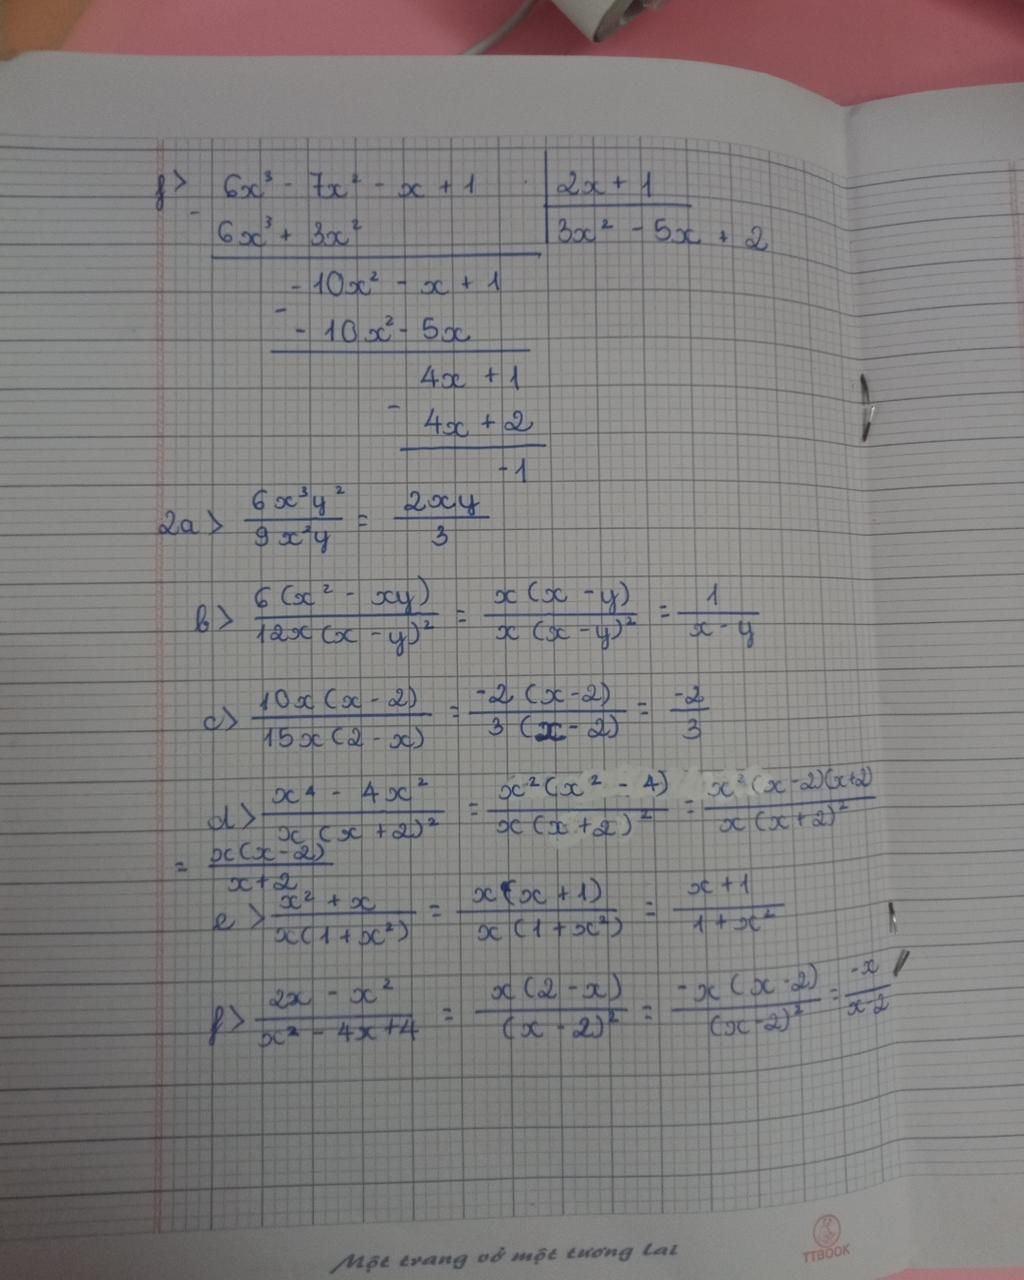 f> 6x³ - 7x² - x + 1 2x + 1
- 6x³ + 3x² 3x² - 5x + 2
- 10x² - x + 1
- - 10x² - 5x
4x + 1
- 4x + 2
-1
2a> 6x³y² / 9x²y = 2xy / 3
b> 6(x² - xy) / 12x(x - y)² = x(x - y) / x(x - y)² = 1 / x - y
c> 10x(x - 2) / 15x(2 - x) = -2(x - 2) / 3(x - 2) = -2 / 3
d> x⁴ - 4x² / x(x + 2)² = x²(x² - 4) / x(x + 2)² = x²(x - 2)(x + 2) / x(x + 2)²
= x(x - 2) / x + 2
e> x² + x / x(1 + x²) = x(x + 1) / x(1 + x²) = x + 1 / 1 + x²
f> 2x - x² / x² - 4x + 4 = x(2 - x) / (x - 2)² = -x(x - 2) / (x - 2)² = -x / x - 2
Một trang vở một tương lai
TTBOOK